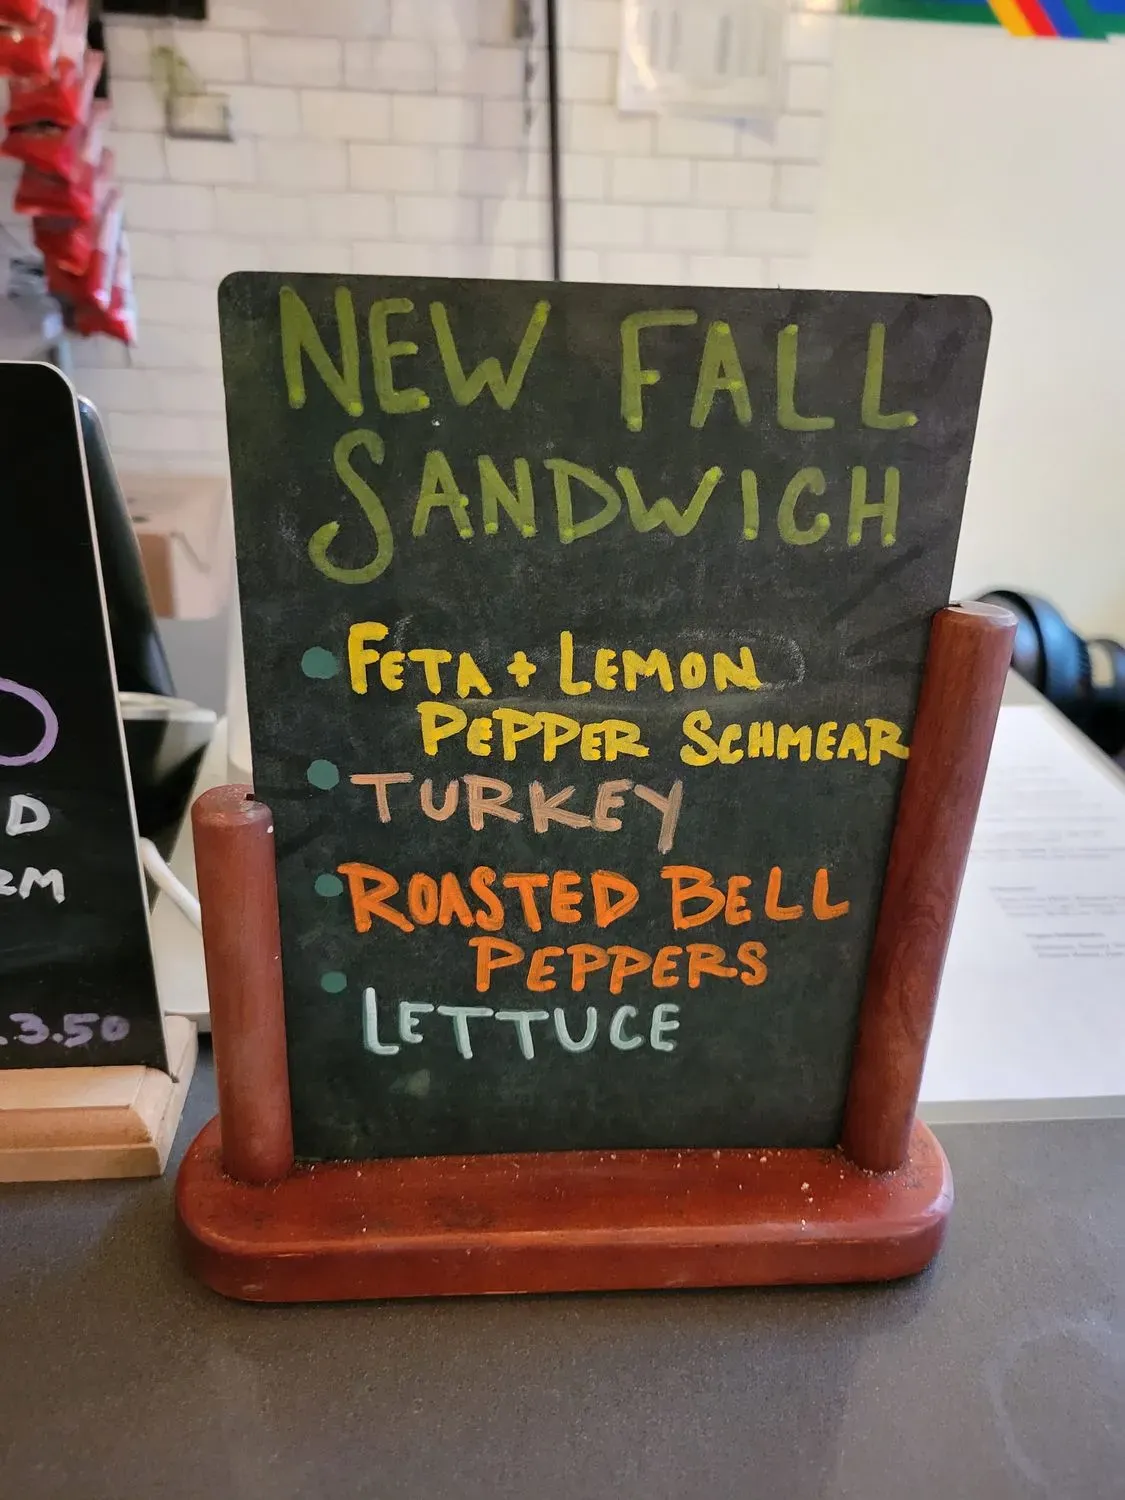 NEW FALL
SANDWICH
FETA + LEMON
PEPPER SCHMEAR
TURKEY
ROASTED BELL
PEPPERS
LETTUCE
D
3.50